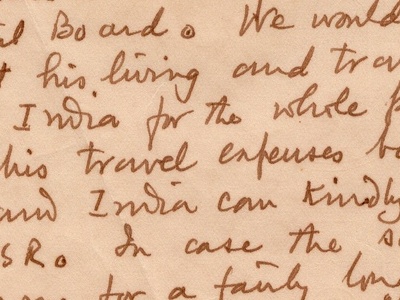 Board. We would
his living and
India for the whole
his travel expenses
and India can kindly
SR. In case the
for a fairly